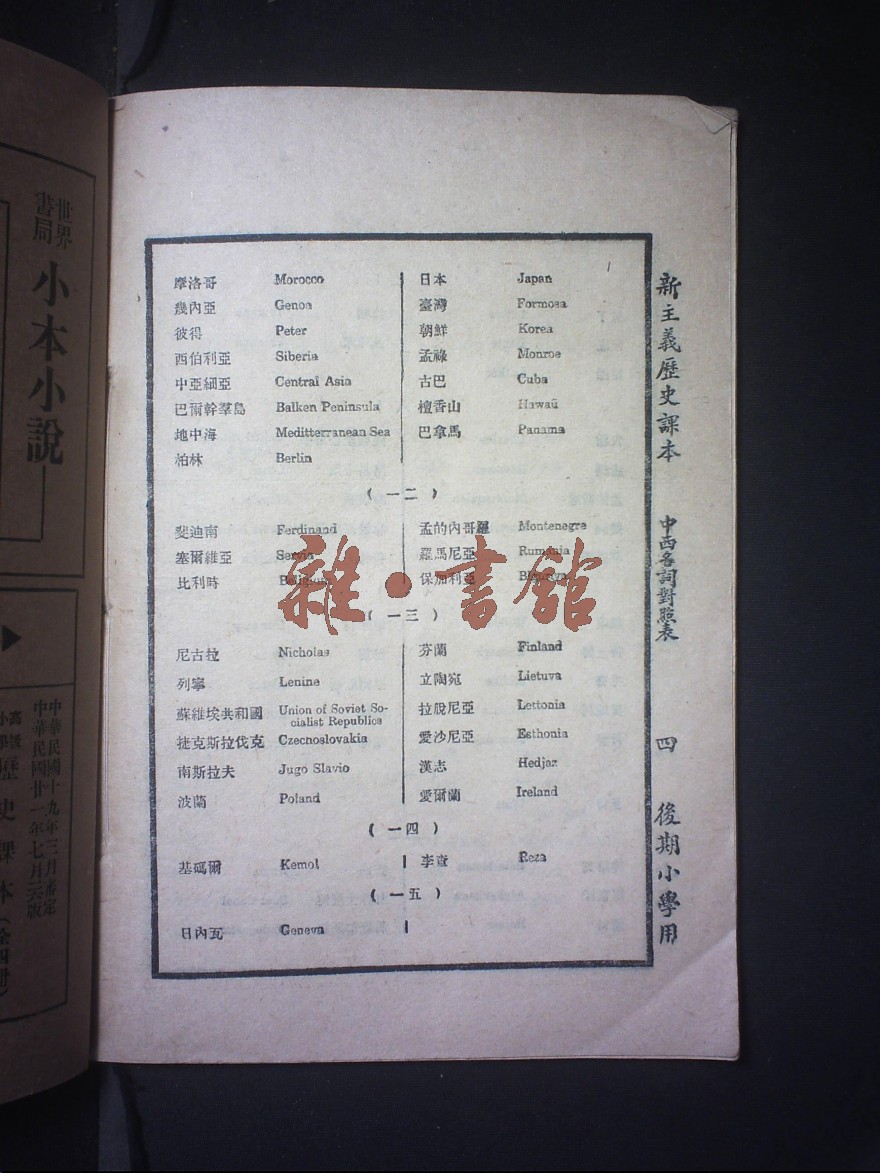 新主義歷史課本 中西名詞對照表 四 後期小學用
摩洛哥 Morocco
幾內亞 Genoa
彼得 Peter
西伯利亞 Siberia
中亞細亞 Central Asia
巴爾幹羣島 Balken Peninsula
地中海 Meditterranean Sea
柏林 Berlin
日本 Japan
臺灣 Formosa
朝鮮 Korea
孟祿 Monroe
古巴 Cuba
檀香山 Hawaii
巴拿馬 Panama
(一二)
斐迪南 Ferdinand
塞爾維亞 Servia
比利時 Belgium
孟的內哥羅 Montenegre
羅馬尼亞 Rumania
保加利亞
(一三)
尼古拉 Nicholas
列寧 Lenine
蘇維埃共和國 Union of Soviet So-
cialist Republics
捷克斯拉伐克 Czechoslovakia
南斯拉夫 Jugo Slavio
波蘭 Poland
芬蘭 Finland
立陶宛 Lietuva
拉脫尼亞 Lettonia
愛沙尼亞 Esthonia
漢志 Hedjaz
愛爾蘭 Ireland
(一四)
基碼爾 Kemol
李查 Reza
(一五)
日內瓦 Geneva
世界
書局
小本小說
中華民國十九年三月審定
中華民國廿一年七月三版
歷史課本(全四冊)
雜·書館